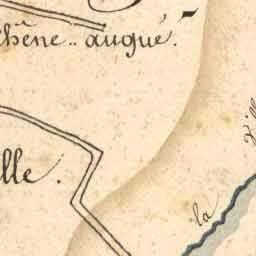 chêne .. augué.
lle.
la